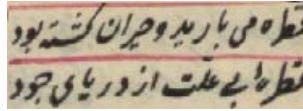 قطره می بارید و حیران گشته بود
قطره ای بی علت از دریای جود